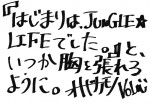 『はじまりは、JUNGLE☆
LIFEでした。』と、
いつか胸を張れる
ように。